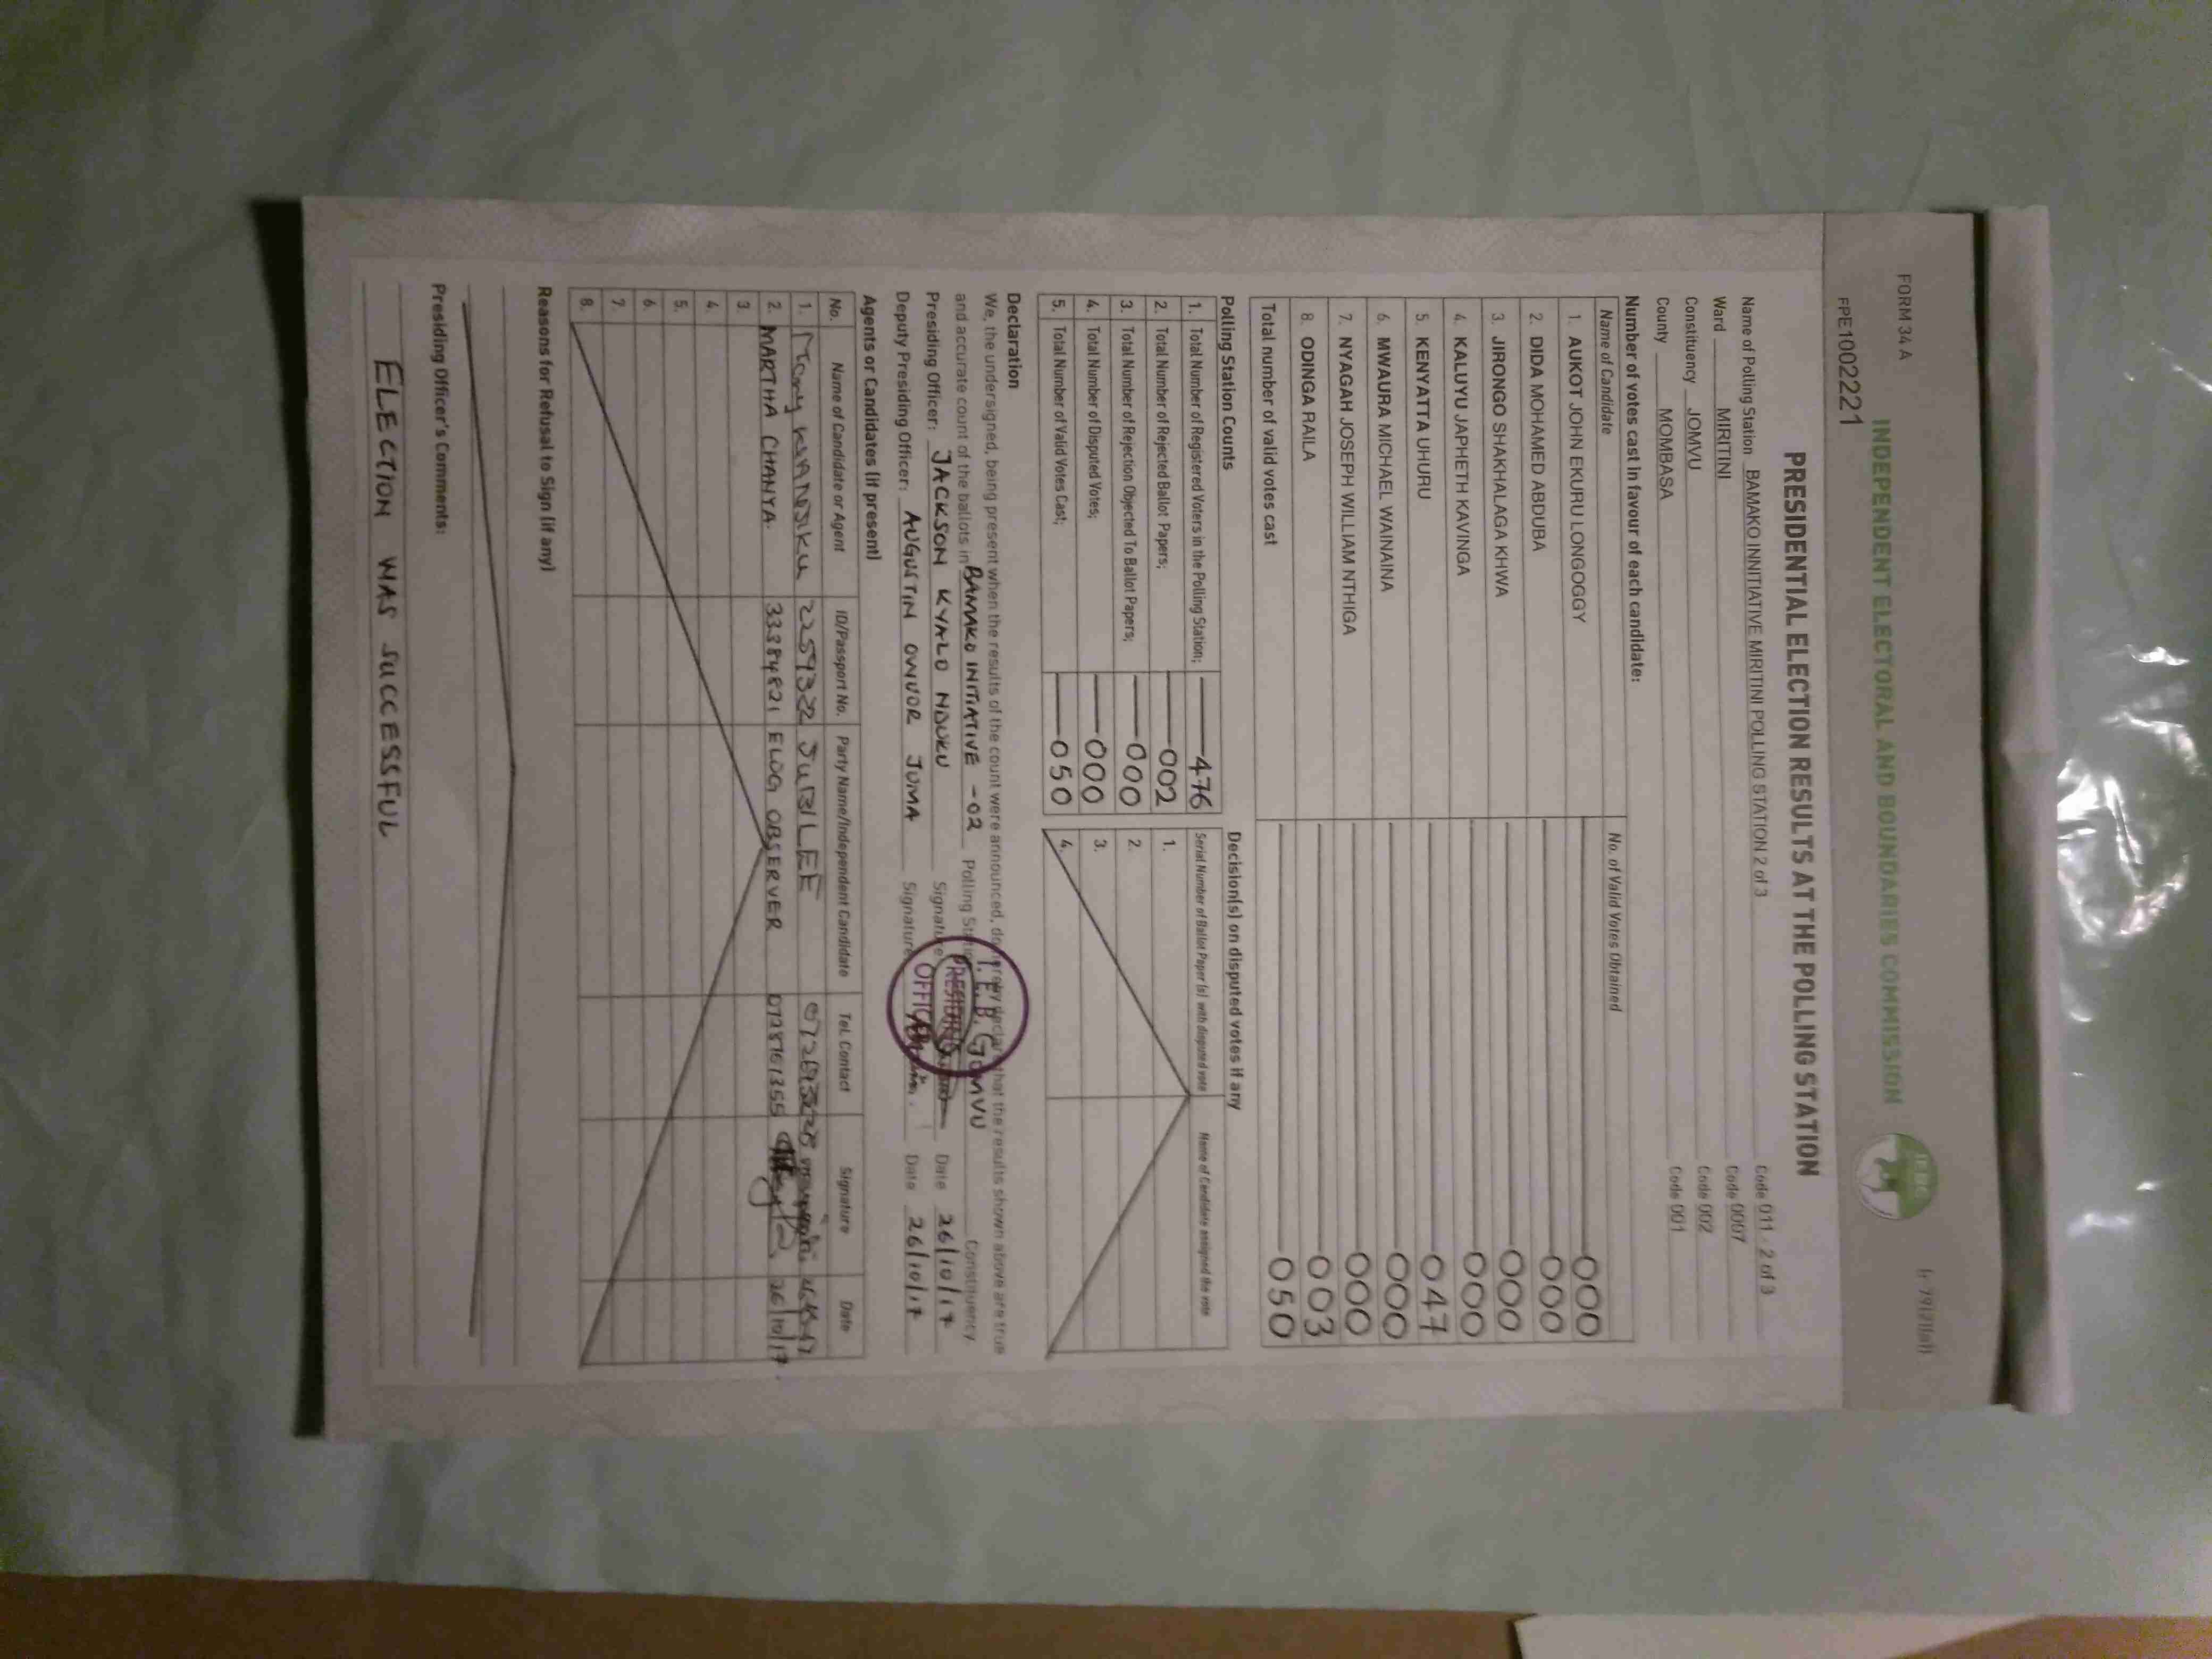 FORM 34 A
INDEPENDENT ELECTORAL AND BOUNDARIES COMMISSION
IEBC
FPE1002221
PRESIDENTIAL ELECTION RESULTS AT THE POLLING STATION
Name of Polling Station BAMAKO INNITIATIVE MIRITINI POLLING STATION 2 of 3 Code 011 - 2 of 3
Ward MIRITINI Code 0007
Constituency JOMVU Code 002
County MOMBASA Code 001
Number of votes cast in favour of each candidate:
Name of Candidate No. of Valid Votes Obtained
1. AUKOT JOHN EKURU LONGOGGY 000
2. DIDA MOHAMED ABDUBA 000
3. JIRONGO SHAKHALAGA KHWA 000
4. KALUYU JAPHETH KAVINGA 000
5. KENYATTA UHURU 047
6. MWAURA MICHAEL WAINAINA 000
7. NYAGAH JOSEPH WILLIAM NTHIGA 000
8. ODINGA RAILA 003
Total number of valid votes cast 050
Polling Station Counts Decision(s) on disputed votes if any
1. Total Number of Registered Voters in the Polling Station; 476 Serial Number of Ballot Paper (s) with disputed vote Name of Candidate assigned the vote
2. Total Number of Rejected Ballot Papers; 002 1.
3. Total Number of Rejection Objected To Ballot Papers; 000 2.
4. Total Number of Disputed Votes; 000 3.
5. Total Number of Valid Votes Cast; 050 4.
Declaration
We, the undersigned, being present when the results of the count were announced, do hereby declare that the results shown above are true
and accurate count of the ballots in BAMAKO INITIATIVE -02 Polling Station JOMVU Constituency.
Presiding Officer: JACKSON KYALO NDUKU Signature Date 26/10/17
Deputy Presiding Officer: AUGUSTIN OWUOR JUMA Signature Date 26/10/17
I.E.B.C
PRESIDING
OFFICER
Agents or Candidates (if present)
No. Name of Candidate or Agent ID/Passport No. Party Name/Independent Candidate Tel. Contact Signature Date
1. JUBILEE
2. MARTHA CHANYA. 33384821 ELOG OBSERVER 0728761355 26/10/17
3.
4.
5.
6.
7.
8.
Reasons for Refusal to Sign (if any)
Presiding Officer's Comments:
ELECTION WAS SUCCESSFUL